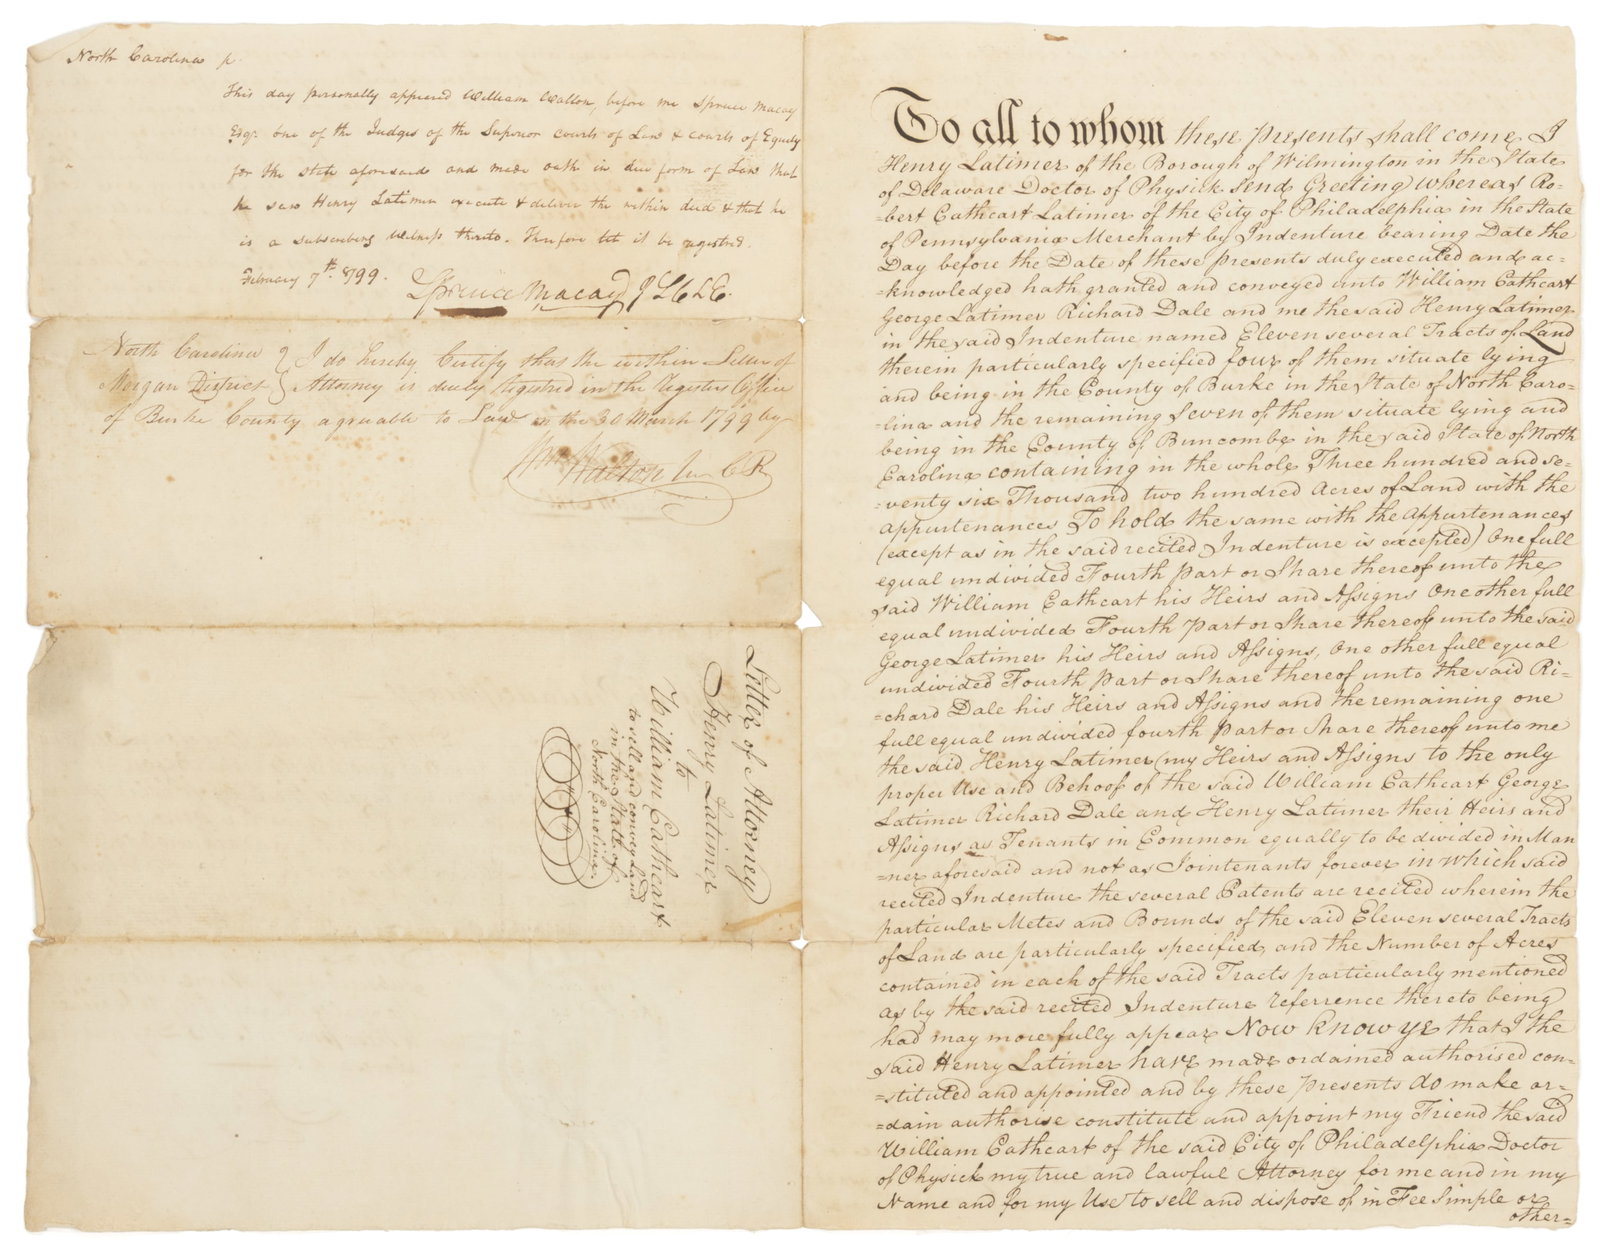 North Carolina
This day personally appeared William Walton, before me Spruce Macay
Esqr. one of the Judges of the Superior courts of Law & courts of Equity
for the state aforesaid and made oath in due form of Law that
he saw Henry Latimer execute & deliver the within deed & that he
is a subscribing witness thereto. Therefore let it be registred.
February 7th. 1799.
Spruce Macay J S L & E.
North Carolina } I do hereby Certify that the within Letter of
Morgan District } Attorney is duely registred in the Registers Office
of Burke County agreable to Law on the 30 March 1799 by
Wm Walton Jun C R
Letter of Attorney
Henry Latimer
to
William Cathcart
to sell and convey Land
in the State of
North Carolina
To all to whom these presents shall come I
Henry Latimer of the Borough of Wilmington in the State
of Delaware Doctor of Physick Send Greeting whereas Ro-
-bert Cathcart Latimer of the City of Philadelphia in the State
of Pennsylvania Merchant by Indenture bearing Date the
Day before the Date of these presents duly executed and ac-
-knowledged hath granted and conveyed unto William Cathcart
George Latimer Richard Dale and me the said Henry Latimer
in the said Indenture named Eleven several Tracts of Land
therein particularly specified four of them situate lying
and being in the County of Burke in the State of North Caro-
-lina and the remaining Seven of them situate lying and
being in the County of Buncombe in the said State of North
Carolina containing in the whole Three hundred and se-
-venty six Thousand two hundred Acres of Land with the
appurtenances To hold the same with the Appurtenances
(except as in the said recited Indenture is excepted) One full
equal undivided Fourth part or Share thereof unto the
said William Cathcart his Heirs and Assigns One other full
equal undivided Fourth part or Share thereof unto the said
George Latimer his Heirs and Assigns, One other full equal
undivided Fourth part or Share thereof unto the said Ri-
-chard Dale his Heirs and Assigns and the remaining one
full equal undivided fourth part or Share thereof unto me
the said Henry Latimer my Heirs and Assigns to the only
proper Use and Behoof of the said William Cathcart George
Latimer Richard Dale and Henry Latimer their Heirs and
Assigns as Tenants in Common equally to be divided in Man
-ner aforesaid and not as Jointenants forever in which said
recited Indenture the several Patents are recited wherein the
particular Metes and Bounds of the said Eleven several Tracts
of Land are particularly specified, and the Number of Acres
contained in each of the said Tracts particularly mentioned
as by the said recited Indenture referrence thereto being
had may more fully appear Now know ye that I the
said Henry Latimer have made ordained authorised con-
-stituted and appointed and by these presents do make or-
-dain authorise constitute and appoint my Friend the said
William Cathcart of the said City of Philadelphia Doctor
of Physick my true and lawful Attorney for me and in my
Name and for my Use to sell and dispose of in Fee Simple or
other-